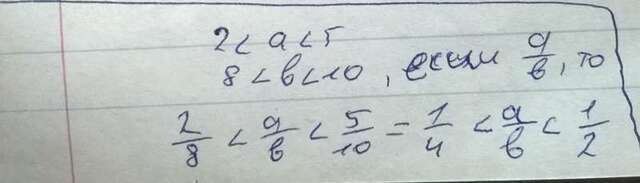 2 < a < 5
8 < b < 10, если a/b, то
2/8 < a/b < 5/10 = 1/4 < a/b < 1/2